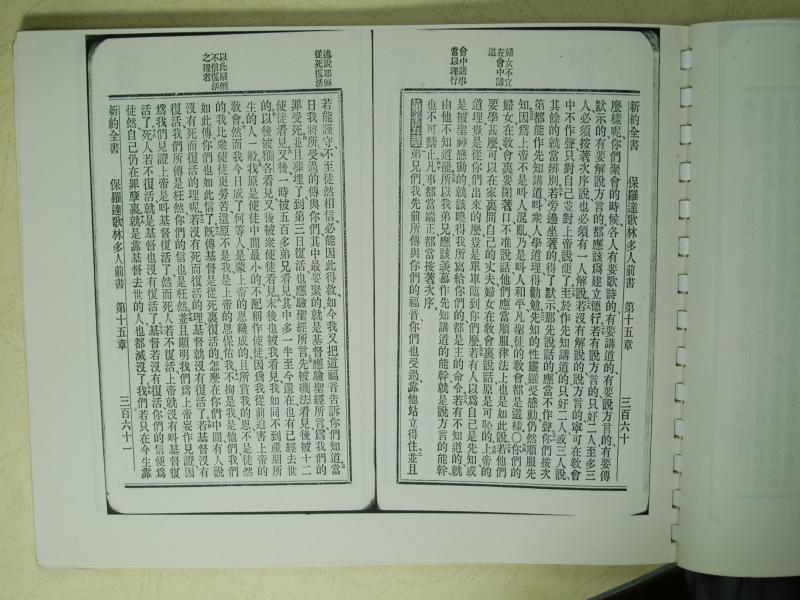 新約全書　保羅達歌林多人前書　第十五章　三百六十
麼樣呢、你們聚會的時候、各人有要歌詩的、有要講道的、有要說方言的、有要傳
默示的、有要解說方言的、都應該為建立德行、若有說方言的、只好二人、至多三
人、必須按著次序說、也必須有一人解說、若沒有解說的、說方言的寧可在敎會
中不作聲、只對自己並對上帝說便了、至於作先知講道的、只好二人、或三人說、
其餘的就當辨別、若旁邊坐著的得了默示、那先說話的應當不作聲、你們按次
第都能作先知講道、叫衆人學道理、得勸勉、先知的性靈、羅受感動、仍然順服先
知、因為上帝不是叫人混亂、乃是叫人和平、凡聖徒的敎會都是這樣、○你們的
婦女在敎會裏要閉著口、不准說話、他們應當順服、律法上也是如此說、若他們
要學甚麼、可以在家裏問自己的丈夫、婦女在敎會裏說話、原是可恥的、上帝的
道理、豈是從你們出來的麼、豈是單單臨到你們麼、若有人說自己是先知、或
是被聖神感動的、就該曉得我所寫給你們的、都是主的命令、若有不知道的、就
由他不知道罷、所以我弟兄應該羡慕作先知講道的能幹、就是說方言的能幹、
也不可禁止、凡事都當端正、都當按著次序、
第十五章弟兄們、我先前所傳與你們的福音、你們也受過、靠他站立得住、並且
婦女不宜在會中講道
會中諸事當以理行
若能謹守、不至徒然相信、必能因此得救、如今我又把這福音告訴你們知道、當
日我將所受過的傳與你們、其中最要緊的、就是基督應驗聖經所言、為我們的
罪受死、並且葬埋了、到第三日復活、也應驗聖經所言、先被磯法看見、後被十二
使徒看見、又後一時被五百多弟兄看見、其中多一半至今還在、也有已經去世
的、以後被雅各看見、又後被衆使徒看見、末後也被我看見、我如同不到產期所
生的人一般、我原是使徒中間最小的、不配稱作使徒、因為我從前迫害上帝的
敎會、然而我今日成了何等人、是蒙上帝的恩纔成的、且所賞我的恩不是徒然
的、我比衆使徒更勞苦、這原不是我、是上帝的恩保佑我、不拘是我是他們、我們
如此傳、你們也如此信了、旣傳基督是從死裏復活的、怎麼在你們中間有人說
沒有死而復活的理呢、若沒有死而復活的理、基督就沒有復活了、若基督沒有
復活、我們所傳的是枉然、你們的信也是枉然、並且顯明我們為上帝妄作見證、因
為我們見證上帝是叫基督復活了、然而死人若不復活、上帝就沒有叫基督復
活了、死人若不復活、就是基督也沒有復活了、基督若沒有復活、你們的信便為
徒然、自己仍在罪孽裏、就是靠基督去世的人也都滅沒了、我們若只在今生靠
新約全書　保羅達歌林多人前書　第十五章　三百六十一
述說耶穌從死復活
以此駁倒不信復活之理者